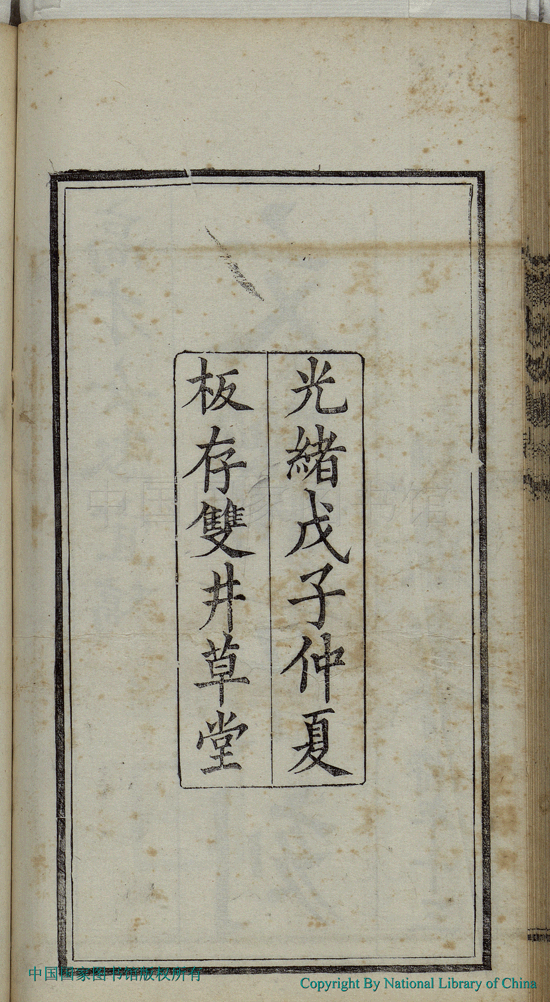 光緒戊子仲夏
板存雙井草堂
中国国家图书馆版权所有
Copyright By National Library of China